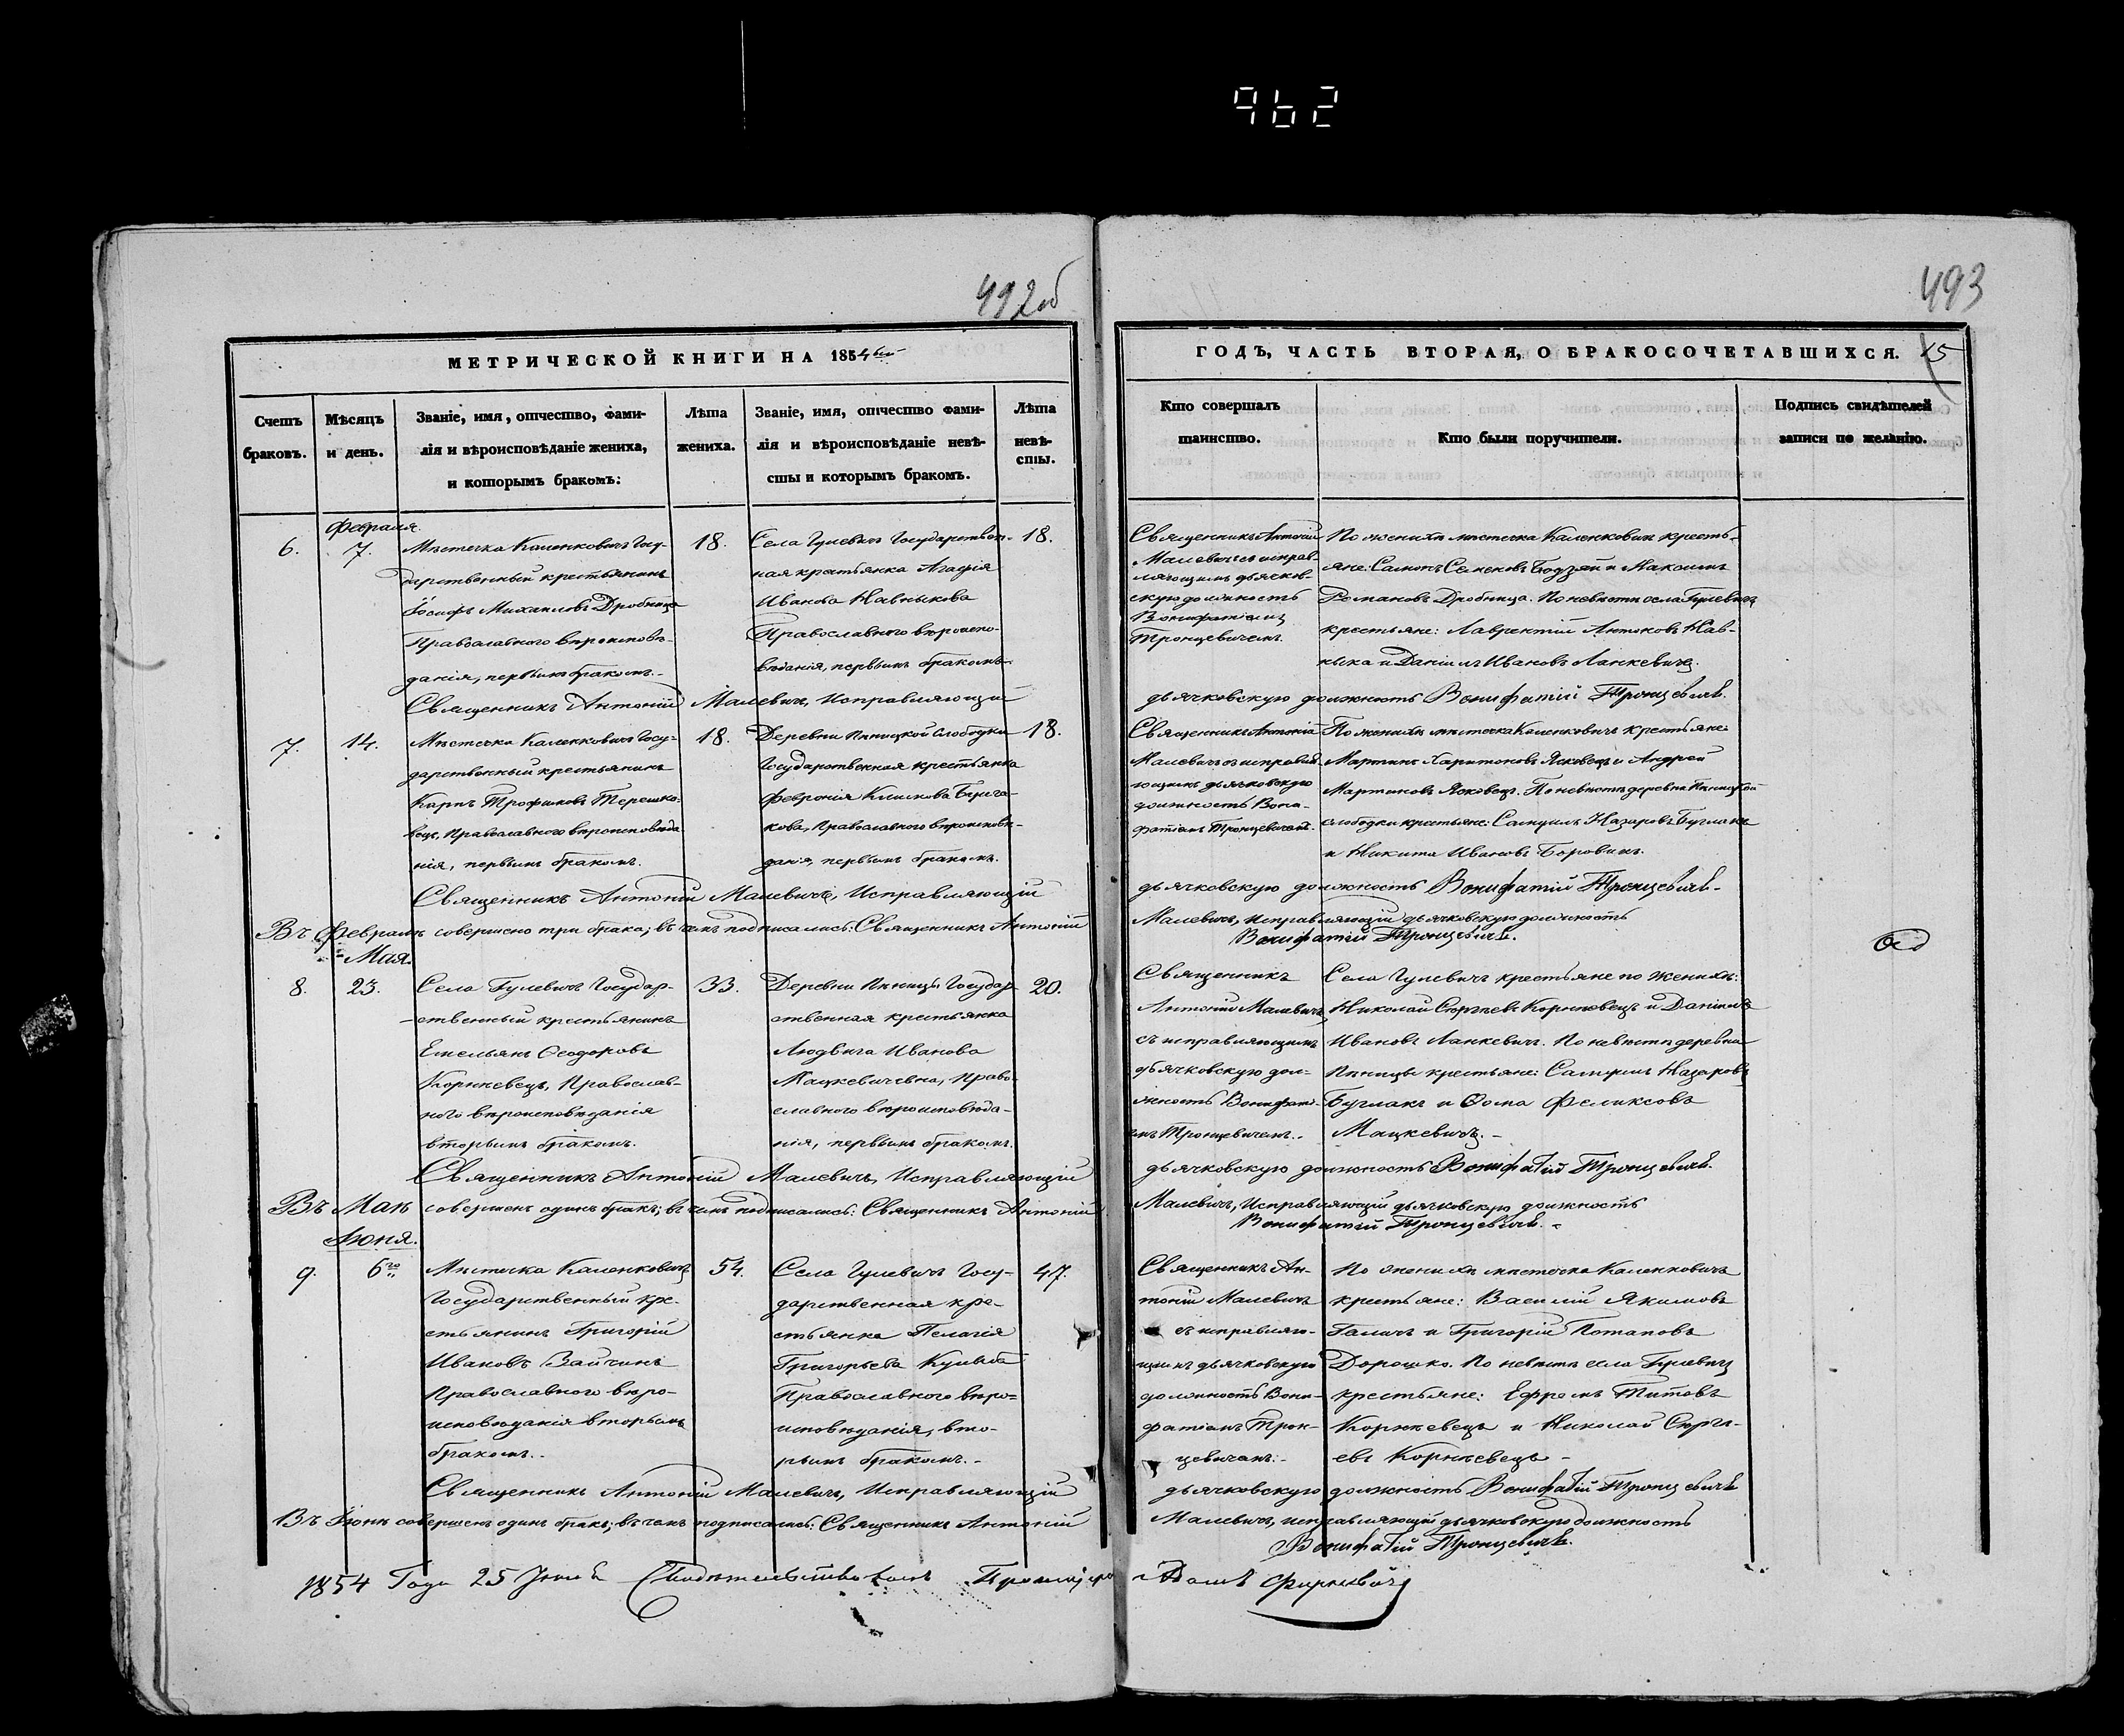 962
492об
493
МЕТРИЧЕСКОЙ КНИГИ НА 1854ый
ГОДЪ, ЧАСТЬ ВТОРАЯ, О БРАКОСОЧЕТАВШИХСЯ.
15
Счетъ браковъ.
Мѣсяцъ и день.
Званіе, имя, отчество, фами-
лія и вѣроисповѣданіе жениха,
и которымъ бракомъ:
Лѣта
жениха.
Званіе, имя, отчество фами-
лія и вѣроисповѣданіе невѣ-
сты и которымъ бракомъ.
Лѣта
невѣ-
сты.
Кто совершалъ
таинство.
Кто были поручители.
Подпись свидѣтелей
записи по желанію.
Февраля
6.
7.
Мѣстечка Каленковичъ Госу-
дарственный крестьянинъ
Іосифъ Михаиловъ Дробница
Православного вѣроисповѣ-
данія, первымъ бракомъ.-
18.
Села Гулевичъ Государствен-
ная крестьянка Агафія
Иванова Навныкова
Православного вѣроиспо-
вѣданія, первымъ бракомъ.
18.
Священникъ Антоній
Малевичъ съ исправ-
ляющимъ дьячков-
скую должность
Вонифатіемъ
Тронцевичемъ.
По женихѣ мѣстечка Каленковичъ кресть-
яне: Самонъ Семеновъ Бодзяй и Максимъ
Романовъ Дробница. По невѣсти села Гулевичъ
крестьяне: Лаврентій Антоновъ Нав-
ныка и Даніилъ Ивановъ Ланкевичъ.
Священникъ Антоній Малевичъ, Исправляющій
дьячковскую должность Вонифатій Тронцевичъ.
7.
14.
Мѣстечка Каленковичъ Госу-
дарственный крестьянинъ
Карпъ Трофимовъ Терешко-
вецъ, Православного вѣроисповѣда
нія, первымъ бракомъ.
18.
Деревни Пѣницкой Слободки
Государственная крестьянка
Февронія Климова Бугла-
кова, Православного вѣроисповѣ-
данія, первымъ бракомъ.
18.
Священникъ Антоній
Малевичъ съ исправля-
ющимъ дьячковскую
должность Вони-
фатіемъ Тронцевичемъ.
По женихѣ мѣстечка Каленковичъ крестьяне:
Мартинъ Харитоновъ Яковецъ и Андрей
Мартиновъ Яковецъ. По невѣсти деревни Пѣницкой
слободки крестьяне: Самуилъ Назаровъ Буглакъ
и Никита Ивановъ Боровикъ.
Священникъ Антоній Малевичъ, Исправляющій
дьячковскую должность Вонифатій Тронцевичъ.-
Въ Февралѣ совершено три брака; въ чемъ подписались: Священникъ Антоній
Малевичъ, Исправляющій дьячковскую должность
Вонифатій Тронцевичъ.
Мая.
8.
23.
Села Гулевичъ Государ-
ственный крестьянинъ
Емельянъ Ѳеодоровъ
Корнѣевецъ, Православ-
ного вѣроисповѣданія
вторымъ бракомъ.
33.
Деревни Пѣницы Государ-
ственная крестьянка
Людвига Иванова
Мацкевичевна, Право-
славного вѣроисповѣда-
нія, первымъ бракомъ.
20.
Священникъ
Антоній Малевичъ
съ исправляющимъ
дьячковскую дол-
жность Вонифаті-
емъ Тронцевичемъ.
Села Гулевичъ крестьяне по женихѣ:
Николай Сергѣевъ Корнѣевецъ и Даніилъ
Ивановъ Ланкевичъ. По невѣсти деревни
Пѣницы крестьяне: Самуилъ Назаровъ
Буглакъ и Ѳома Феликсовъ
Мацкевичъ.-
Священникъ Антоній Малевичъ, Исправляющій
дьячковскую должность Вонифатій Тронцевичъ.
Въ Маѣ совершенъ одинъ бракъ; въ чемъ подписались: Священникъ Антоній
Малевичъ, Исправляющій дьячковскую должность
Вонифатій Тронцевичъ.-
Іюня.
9.
6го
Мѣстечка Каленковичъ
Государственный кре-
стьянинъ Григорій
Ивановъ Зайчикъ
Православного вѣро-
исповѣданія вторымъ
бракомъ.-
54.
Села Гулевичъ Госу-
дарственная кре-
стьянка Пелагія
Григорьева
Православного вѣро-
исповѣданія, вто-
рымъ бракомъ.-
47.
Священникъ Ан-
тоній Малевичъ
съ исправляю-
щимъ дьячковскую
должность Вони-
фатіемъ Трон-
цевичемъ.-
По женихѣ мѣстечка Каленковичъ
крестьяне: Василій Якимовъ
Галичъ и Григорій Потаповъ
Дорошко. По невѣсти села Гулевичъ
крестьяне: Ефремъ Титовъ
Корнѣевецъ и Николай Сергѣ-
евъ Корнѣевецъ-
Священникъ Антоній Малевичъ, Исправляющій
дьячковскую должность Вонифатій Тронцевичъ
Въ Іюнѣ совершенъ одинъ бракъ; въ чемъ подписались: Священникъ Антоній
Малевичъ, исправляющій дьячковскую должность
Вонифатій Тронцевичъ.
1854 Года 25 Іюня Свидѣтельствовалъ